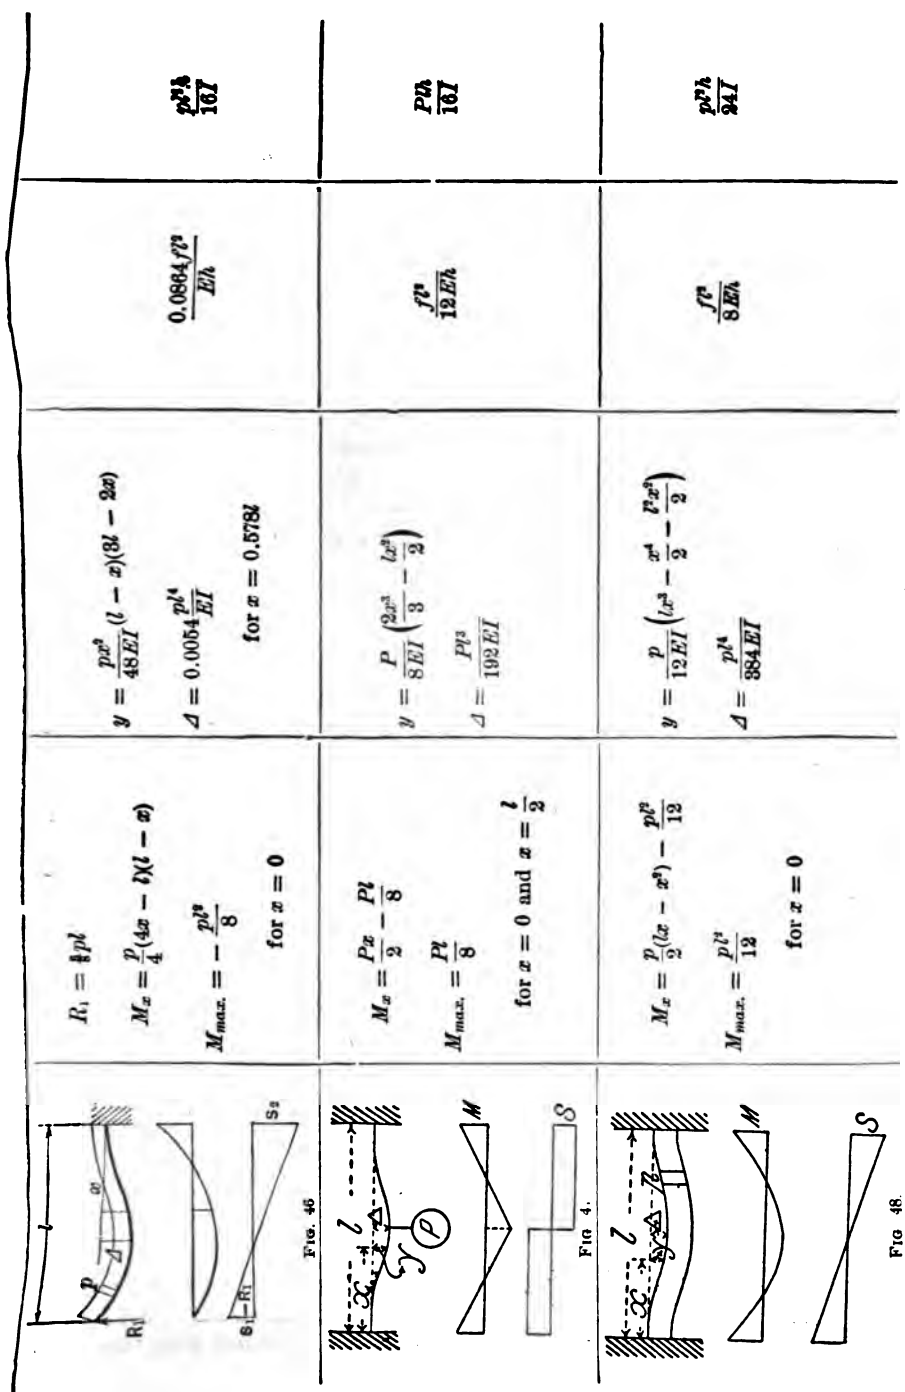 l
x
p
Δ
R₁
S₁—R₁
S₂
FIG. 46
R₁ = ⅜pl
Mₓ = p/4 (4x − l)(l − x)
M_max. = − pl²/8
for x = 0
y = px²/48EI (l − x)(3l − 2x)
Δ = 0.0054 pl⁴/EI
for x = 0.578l
0.0864fl²/Eh
pl²h/16I
x
l
Δ
P
M
S
FIG 4.
Mₓ = Px/2 − Pl/8
M_max. = Pl/8
for x = 0 and x = l/2
y = P/8EI (2x³/3 − lx²/2)
Δ = Pl³/192EI
fl²/12Eh
Plh/16I
x
l
y
Δ
p
M
S
FIG 48.
Mₓ = p/2 (lx − x²) − pl²/12
M_max. = pl²/12
for x = 0
y = p/12EI (lx³ − x⁴/2 − l²x²/2)
Δ = pl⁴/384EI
fl²/8Eh
pl²h/24I